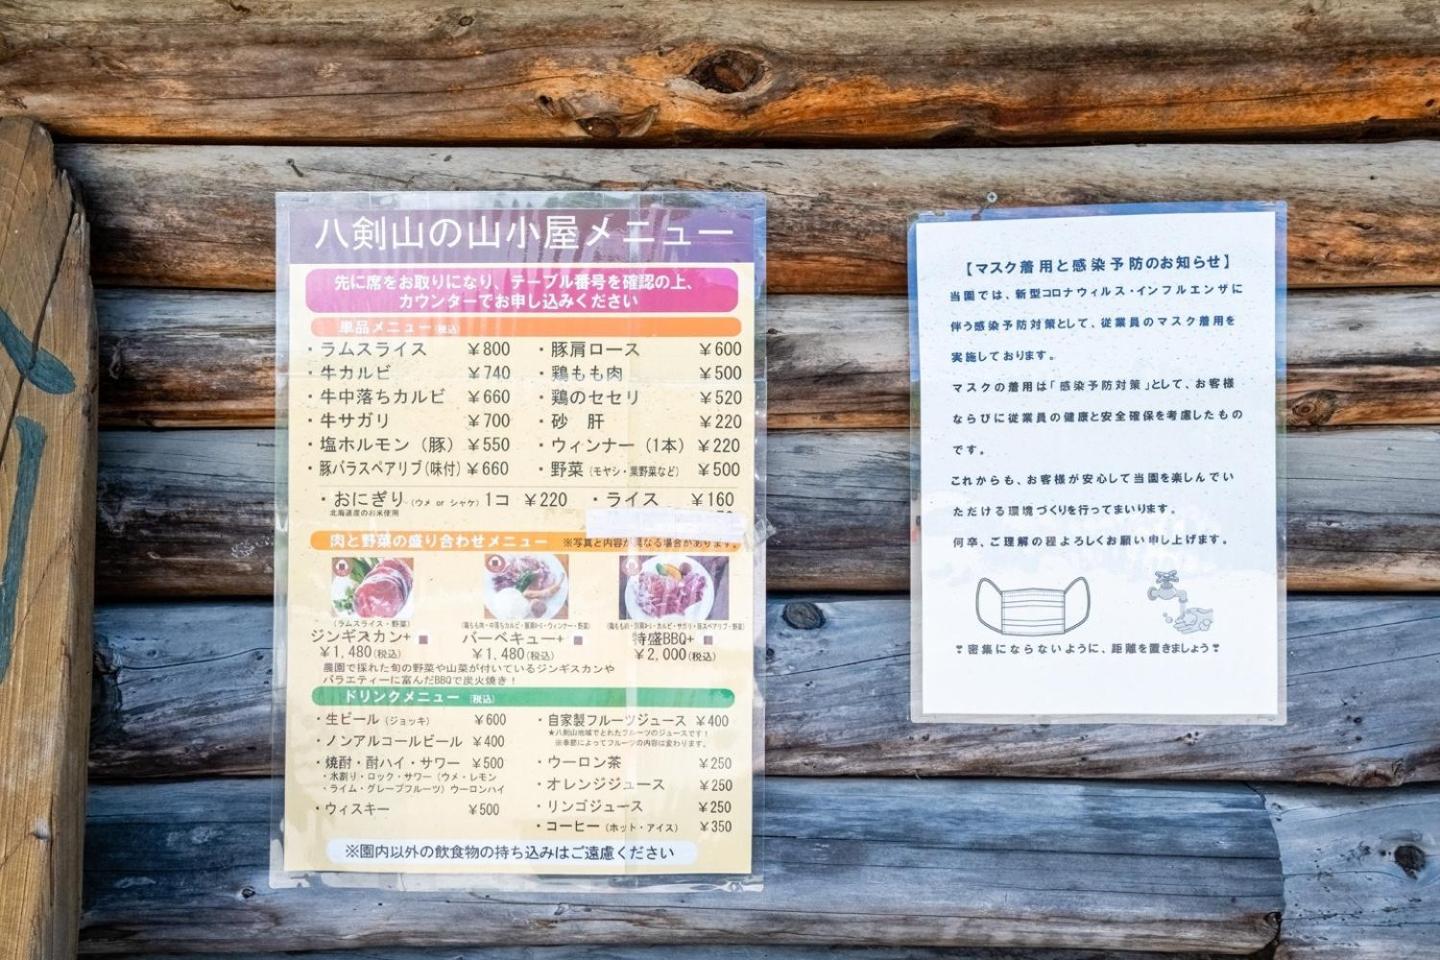 八剣山の山小屋メニュー
先に席をお取りになり、テーブル番号を確認の上、
カウンターでお申し込みください
単品メニュー(税込)
・ラムスライス ￥800
・牛カルビ ￥740
・牛中落ちカルビ ￥660
・牛サガリ ￥700
・塩ホルモン（豚）￥550
・豚バラスペアリブ(味付)￥660
・豚肩ロース ￥600
・鶏もも肉 ￥500
・鶏のセセリ ￥520
・砂 肝 ￥220
・ウィンナー（1本）￥220
・野菜（モヤシ・葉野菜など） ￥500
・おにぎり（ウメ or シャケ）1コ ￥220 ・ライス ￥160
北海道産のお米使用
肉と野菜の盛り合わせメニュー ※写真と内容が異なる場合があります。
（ラムスライス・野菜）
ジンギスカン+
￥1,480(税込)
バーベキュー+
￥1,480(税込)
特盛BBQ+
￥2,000(税込)
農園で採れた旬の野菜や山菜が付いているジンギスカンや
バラエティーに富んだBBQで炭火焼き！
ドリンクメニュー（税込）
・生ビール（ジョッキ） ￥600
・ノンアルコールビール ￥400
・焼酎・酎ハイ・サワー ￥500
・水割り・ロック・サワー（ウメ・レモン
・ライム・グレープフルーツ）ウーロンハイ
・ウィスキー ￥500
・自家製フルーツジュース ￥400
★八剣山地域でとれたフルーツのジュースです！
※季節によってフルーツの内容は変わります。
・ウーロン茶 ￥250
・オレンジジュース ￥250
・リンゴジュース ￥250
・コーヒー（ホット・アイス） ￥350
※園内以外の飲食物の持ち込みはご遠慮ください
【マスク着用と感染予防のお知らせ】
当園では、新型コロナウィルス・インフルエンザに
伴う感染予防対策として、従業員のマスク着用を
実施しております。
マスクの着用は「感染予防対策」として、お客様
ならびに従業員の健康と安全確保を考慮したもの
です。
これからも、お客様が安心して当園を楽しんでい
ただける環境づくりを行ってまいります。
何卒、ご理解の程よろしくお願い申し上げます。
❣密集にならないように、距離を置きましょう❣